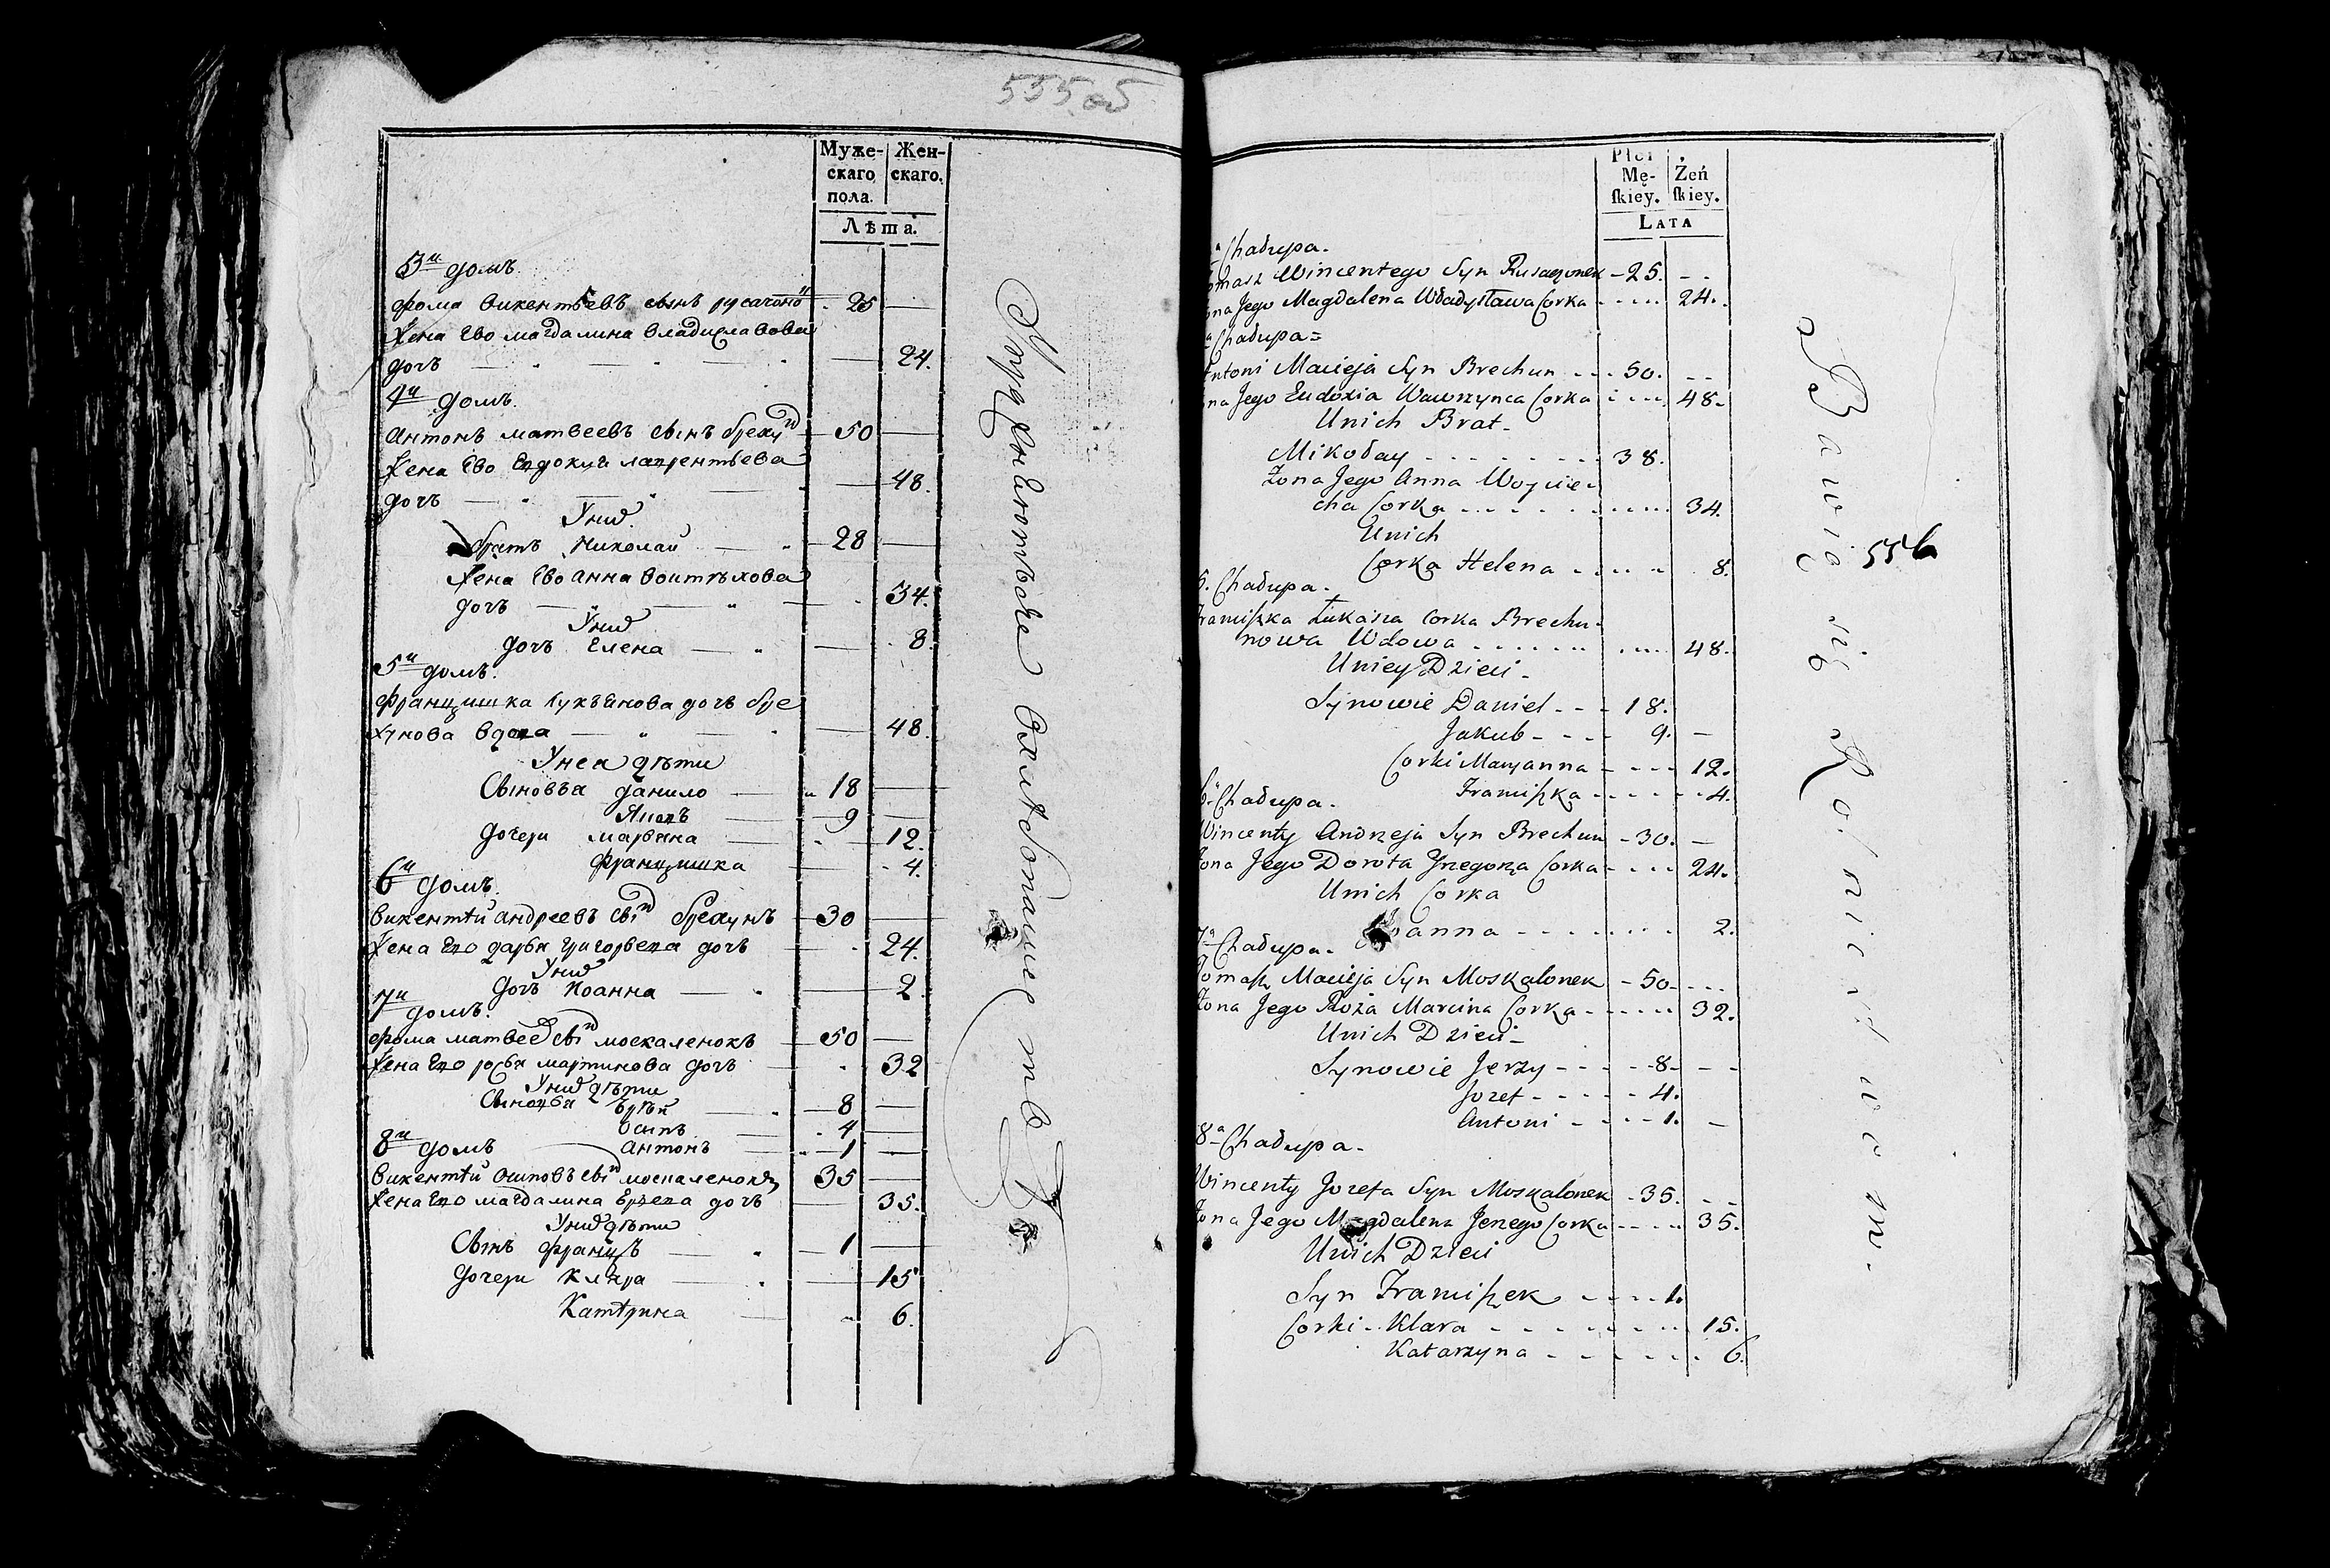 555 об
Муже-
скаго
пола.
Жен-
скаго.
Лѣта.
3й домъ.
фома викентьевъ сынъ русачоно 25
жена Ево магдалина владиславова
дочь 24.
4й домъ.
антонъ матвеевъ сынъ брехун 50
жена Ево Евдокия лаврентьева
дочь 48.
Уних
братъ Николай 28
жена Ево анна воитѣхова
дочь 34.
Уних
дочь Елена 8.
5й домъ.
францишка лукьянова дочь бре
хунова вдова 48.
Унеа дѣти
Сыновья данило 18
Яковъ 9
дочери марьяна 12.
францишка 4.
6й домъ.
викентѣй андреевъ сын брехунъ 30
жена Ево дарья григорьева дочь 24.
Уних
дочь Иоанна 2.
7й домъ.
фома матвеев сын москаленокъ 50
жена Ево розя мартинова дочь 32
Уних дѣти
Сыновья Юрѣй 8
Осипъ 4
антонъ 1
8й домъ
викентѣй осиповъ сын москаленокъ 35
жена Ево магдалина Юрьева дочь 35.
Уних дѣти
Сынъ францъ 1
дочери клара 15
Катѣрина 6.
Płci
Mę-
skiey.
Żeń
skiey.
LATA
Chałupa.
omasz Wincentego Syn Rusaczonek - 25. - -
ona Jego Magdalena Władysława Corka - - - - - 24.
Chałupa=
Antoni Macieja Syn Brechun - - - 50. - -
ona Jego Eudoxia Wawrzynca Corka - - - - 48.
Unich Brat.
Mikołay - - - - - - - - 38.
Zona Jego Anna Woycie-
cha Corka - - - - - - - - - - 34.
Unich
Corka Helena - - - - - 8.
5. Chałupa.
Franciszka Łukasza Corka Brechu-
nowa Wdowa - - - - - - - - - - 48.
Uniey Dzieci.
Synowie Daniel - - - 18.
Jakub - - - - 9. -
Corki Maryanna - - - - 12.
Franciszka - - - - - - 4.
6. Chałupa.
Wincenty Andrzeja Syn Brechun - 30. -
Zona Jego Dorota Grzegorza Corka - - - - 24.
Unich Corka
Joanna - - - - - - - - 2.
7a Chałupa.
Tomasz Macieja Syn Moskalonek - 50. - - -
Zona Jego Roża Marcina Corka - - - - - - 32.
Unich Dzieci.
Synowie Jerzy - - - - 8. - -
Jozef - - - - - 4.
Antoni - - - - 1. -
8a Chałupa.
Wincenty Jozefa Syn Moskalonek - 35. - -
Zona Jego Magdalena Jerzego Corka - - - - - 35.
Unich Dzieci
Syn Franciszek - - - - 1.
Corki - Klara - - - - - - - - - 15.
Katarzyna - - - - - - - 6.
Bawią się Rolnictwem.
556